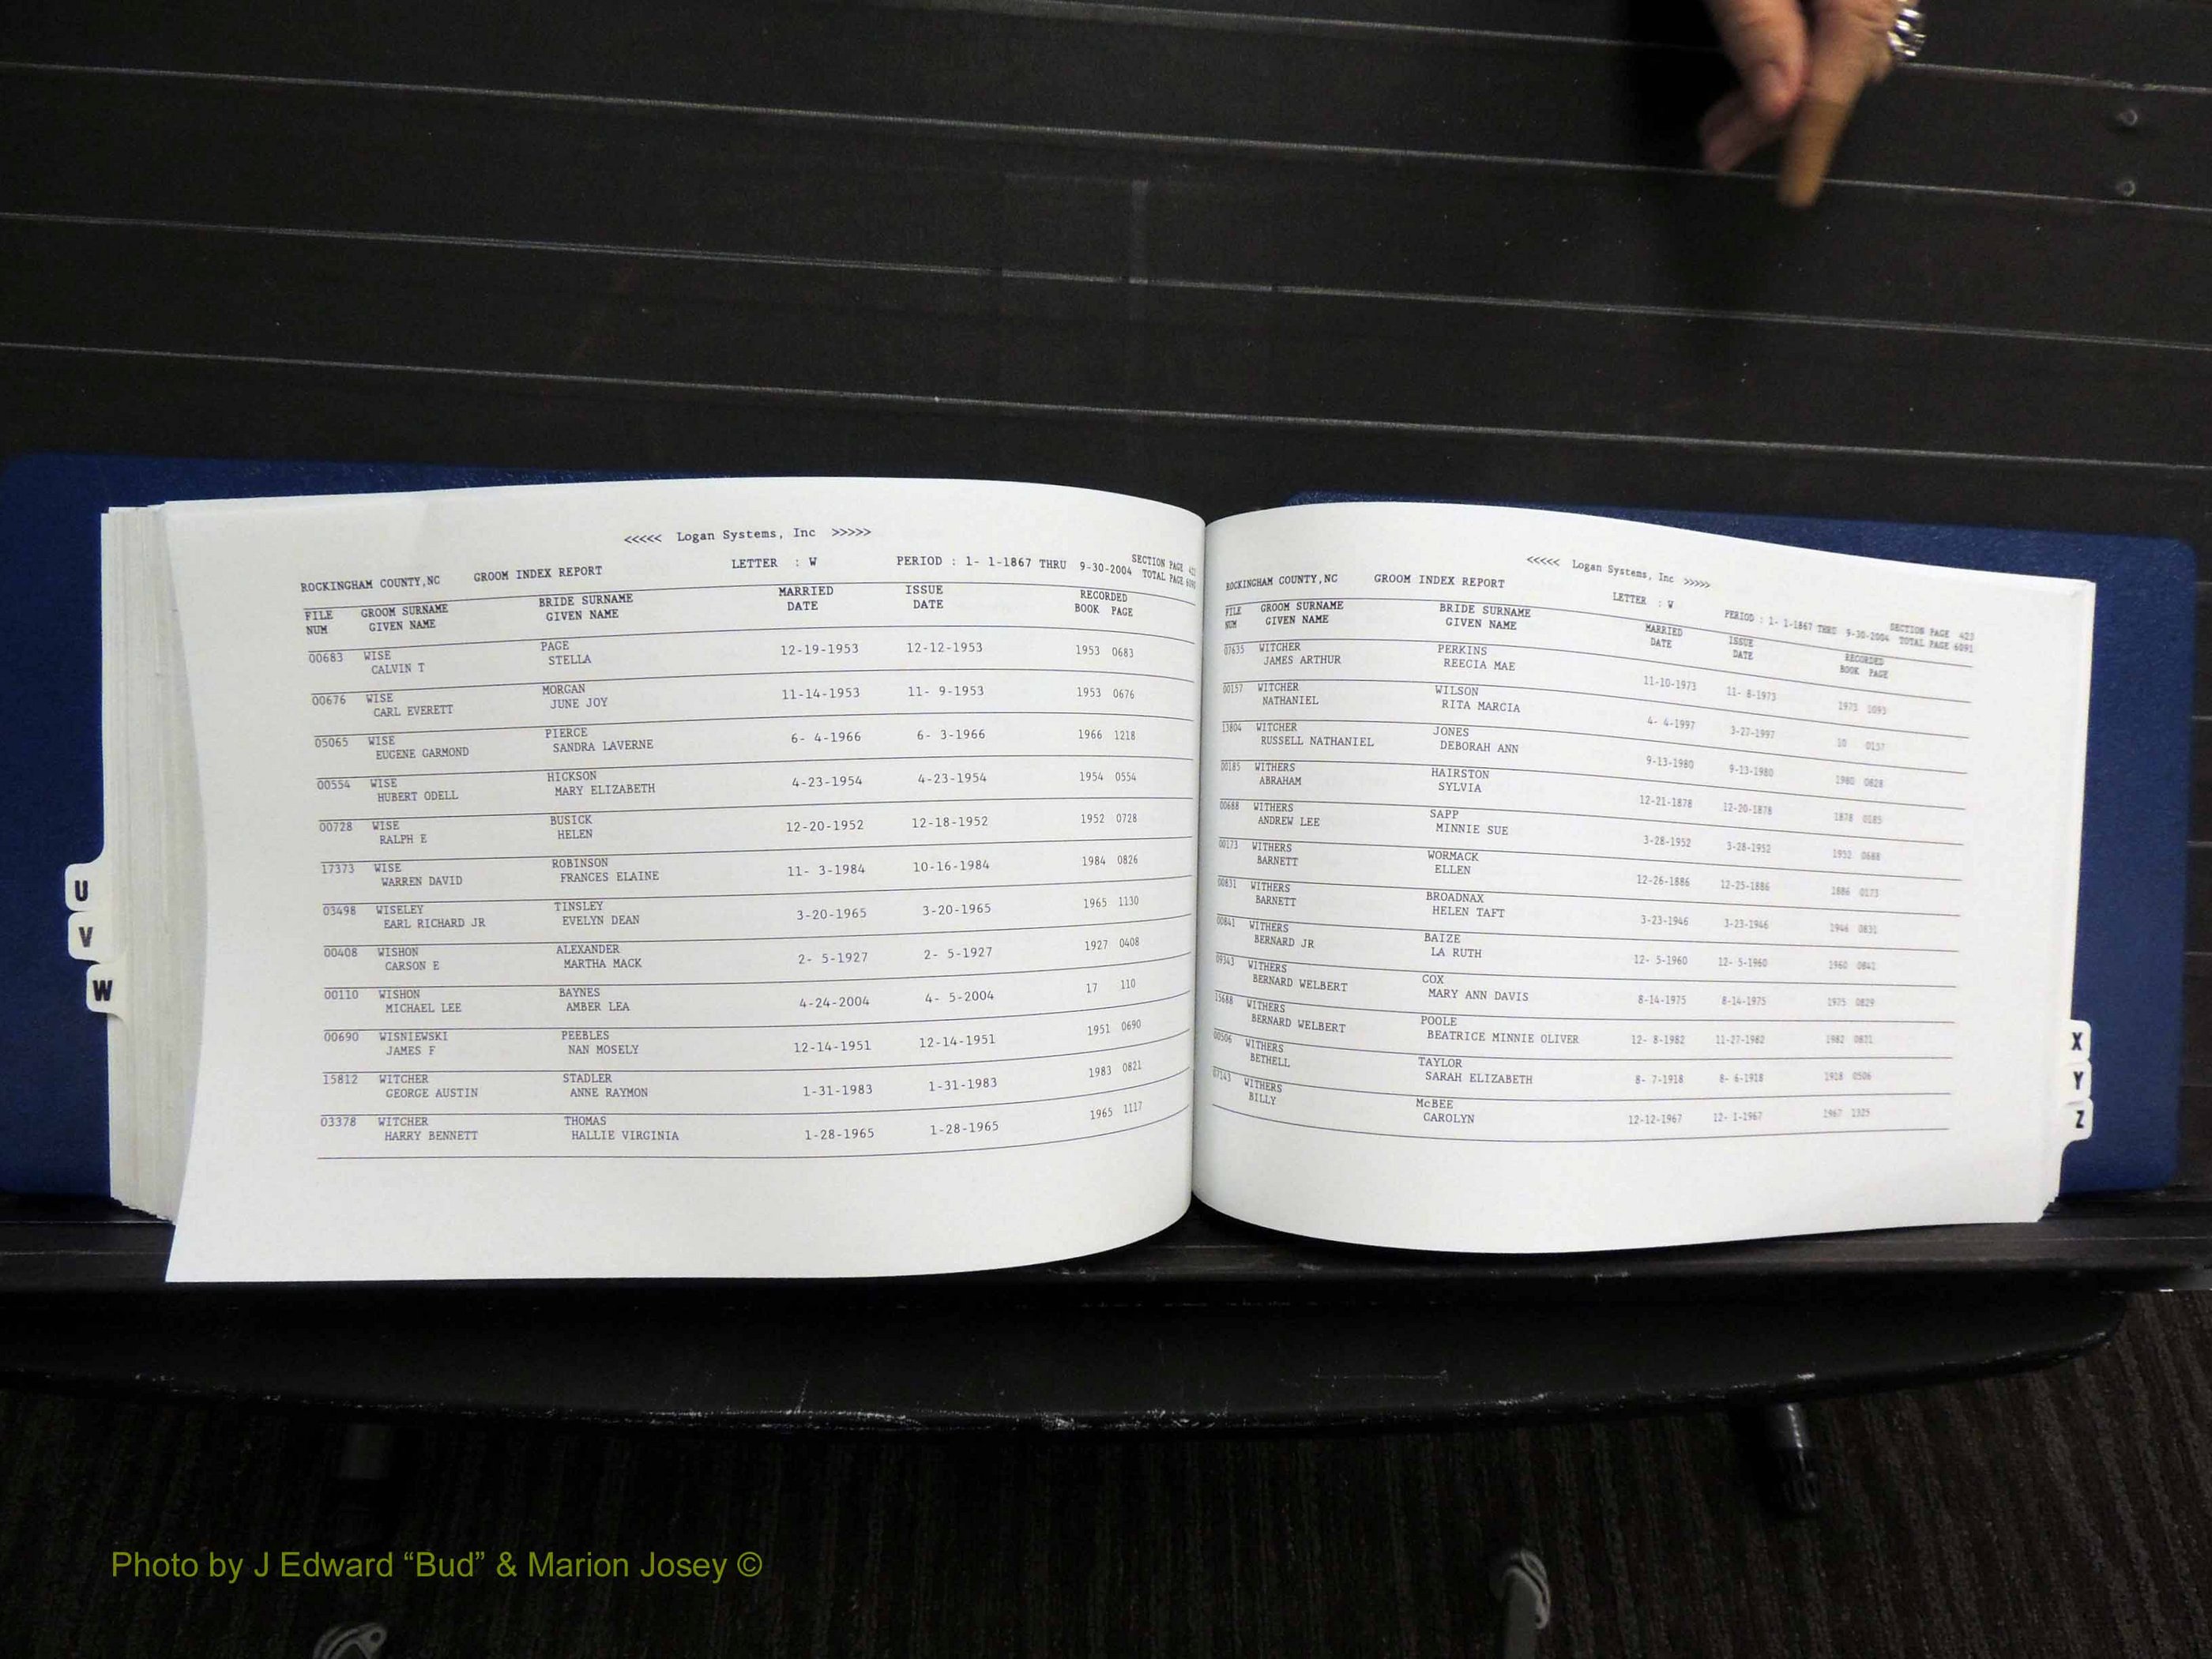 <<<<< Logan Systems, Inc >>>>>
ROCKINGHAM COUNTY,NC GROOM INDEX REPORT LETTER : W PERIOD : 1- 1-1867 THRU 9-30-2004 SECTION PAGE
TOTAL PAGE
FILE GROOM SURNAME BRIDE SURNAME MARRIED ISSUE RECORDED
NUM GIVEN NAME GIVEN NAME DATE DATE BOOK PAGE
00683 WISE PAGE 12-19-1953 12-12-1953 1953 0683
CALVIN T STELLA
00676 WISE MORGAN 11-14-1953 11- 9-1953 1953 0676
CARL EVERETT JUNE JOY
05065 WISE PIERCE 6- 4-1966 6- 3-1966 1966 1218
EUGENE GARMOND SANDRA LAVERNE
00554 WISE HICKSON 4-23-1954 4-23-1954 1954 0554
HUBERT ODELL MARY ELIZABETH
00728 WISE BUSICK 12-20-1952 12-18-1952 1952 0728
RALPH E HELEN
17373 WISE ROBINSON 11- 3-1984 10-16-1984 1984 0826
WARREN DAVID FRANCES ELAINE
03498 WISELEY TINSLEY 3-20-1965 3-20-1965 1965 1130
EARL RICHARD JR EVELYN DEAN
00408 WISHON ALEXANDER 2- 5-1927 2- 5-1927 1927 0408
CARSON E MARTHA MACK
00110 WISHON BAYNES 4-24-2004 4- 5-2004 17 110
MICHAEL LEE AMBER LEA
00690 WISNIEWSKI PEEBLES 12-14-1951 12-14-1951 1951 0690
JAMES F NAN MOSELY
15812 WITCHER STADLER 1-31-1983 1-31-1983 1983 0821
GEORGE AUSTIN ANNE RAYMON
03378 WITCHER THOMAS 1-28-1965 1-28-1965 1965 1117
HARRY BENNETT HALLIE VIRGINIA
U
V
W
<<<<< Logan Systems, Inc >>>>>
ROCKINGHAM COUNTY,NC GROOM INDEX REPORT LETTER : W PERIOD : 1- 1-1867 THRU 9-30-2004 SECTION PAGE 423
TOTAL PAGE 6091
FILE GROOM SURNAME BRIDE SURNAME MARRIED ISSUE RECORDED
NUM GIVEN NAME GIVEN NAME DATE DATE BOOK PAGE
07635 WITCHER PERKINS 11-10-1973 11- 8-1973 1973
JAMES ARTHUR REECIA MAE
00157 WITCHER WILSON 4- 4-1997 3-27-1997 10 0157
NATHANIEL RITA MARCIA
13804 WITCHER JONES 9-13-1980 9-13-1980 1980 0828
RUSSELL NATHANIEL DEBORAH ANN
00185 WITHERS HAIRSTON 12-21-1878 12-20-1878 1878 0185
ABRAHAM SYLVIA
00688 WITHERS SAPP 3-28-1952 3-28-1952 1952 0688
ANDREW LEE MINNIE SUE
00173 WITHERS WORMACK 12-26-1886 12-25-1886 1886 0173
BARNETT ELLEN
00831 WITHERS BROADNAX 3-23-1946 3-23-1946 1946 0831
BARNETT HELEN TAFT
00841 WITHERS BAIZE 12- 5-1960 12- 5-1960 1960 0841
BERNARD JR LA RUTH
09343 WITHERS COX 8-14-1975 8-14-1975 1975 0829
BERNARD WELBERT MARY ANN DAVIS
15688 WITHERS POOLE 12- 8-1982 11-27-1982 1982
BERNARD WELBERT BEATRICE MINNIE OLIVER
00506 WITHERS TAYLOR 8- 7-1918 8- 6-1918 1918 0506
BETHELL SARAH ELIZABETH
07143 WITHERS McBEE 12-12-1967 12- 1-1967 1967 1325
BILLY CAROLYN
X
Y
Z
Photo by J Edward “Bud” & Marion Josey ©